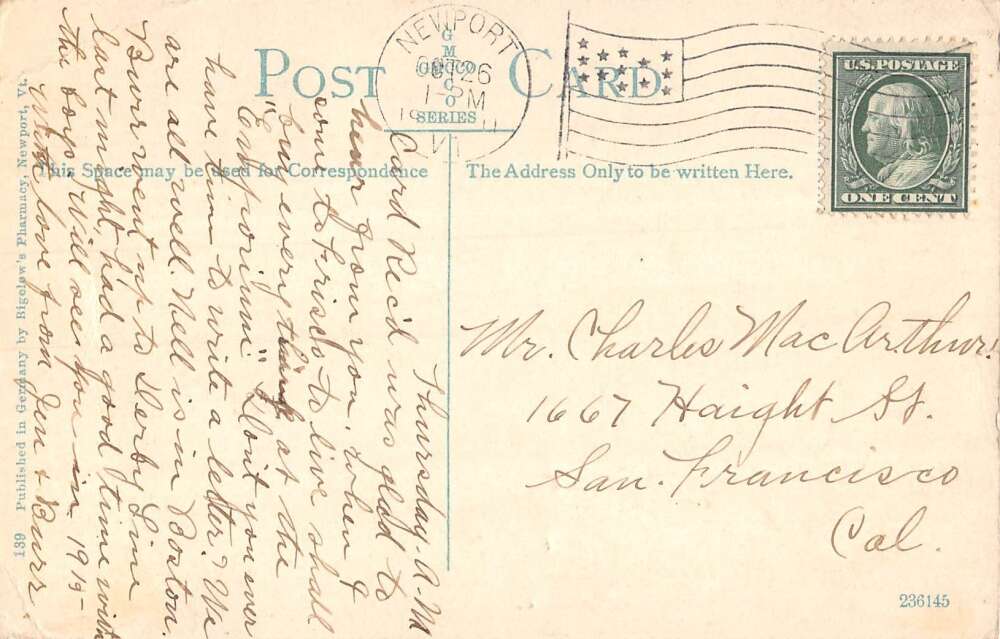 POST CARD
GMTCO
SERIES
NEWPORT
OCT 26
1-PM
VT.
U.S. POSTAGE
ONE CENT
This Space may be used for Correspondence
The Address Only to be written Here.
139 Published in Germany by Bigelow's Pharmacy, Newport, Vt.
Thursday-A.M
Card Rec'd was glad to
hear from you. When I
come to Frisco to live shall
buy everything at the
"Emporium" Don't you ever
have time to write a letter? We
are all well. Nell is in Boston.
Burr went up to Derby Line
last night, had a good time with
the boys. Will see you in 1915-
With love from Jen & Burr
Mr. Charles MacArthur.
1667 Haight St.
San. Francisco
Cal.
236145